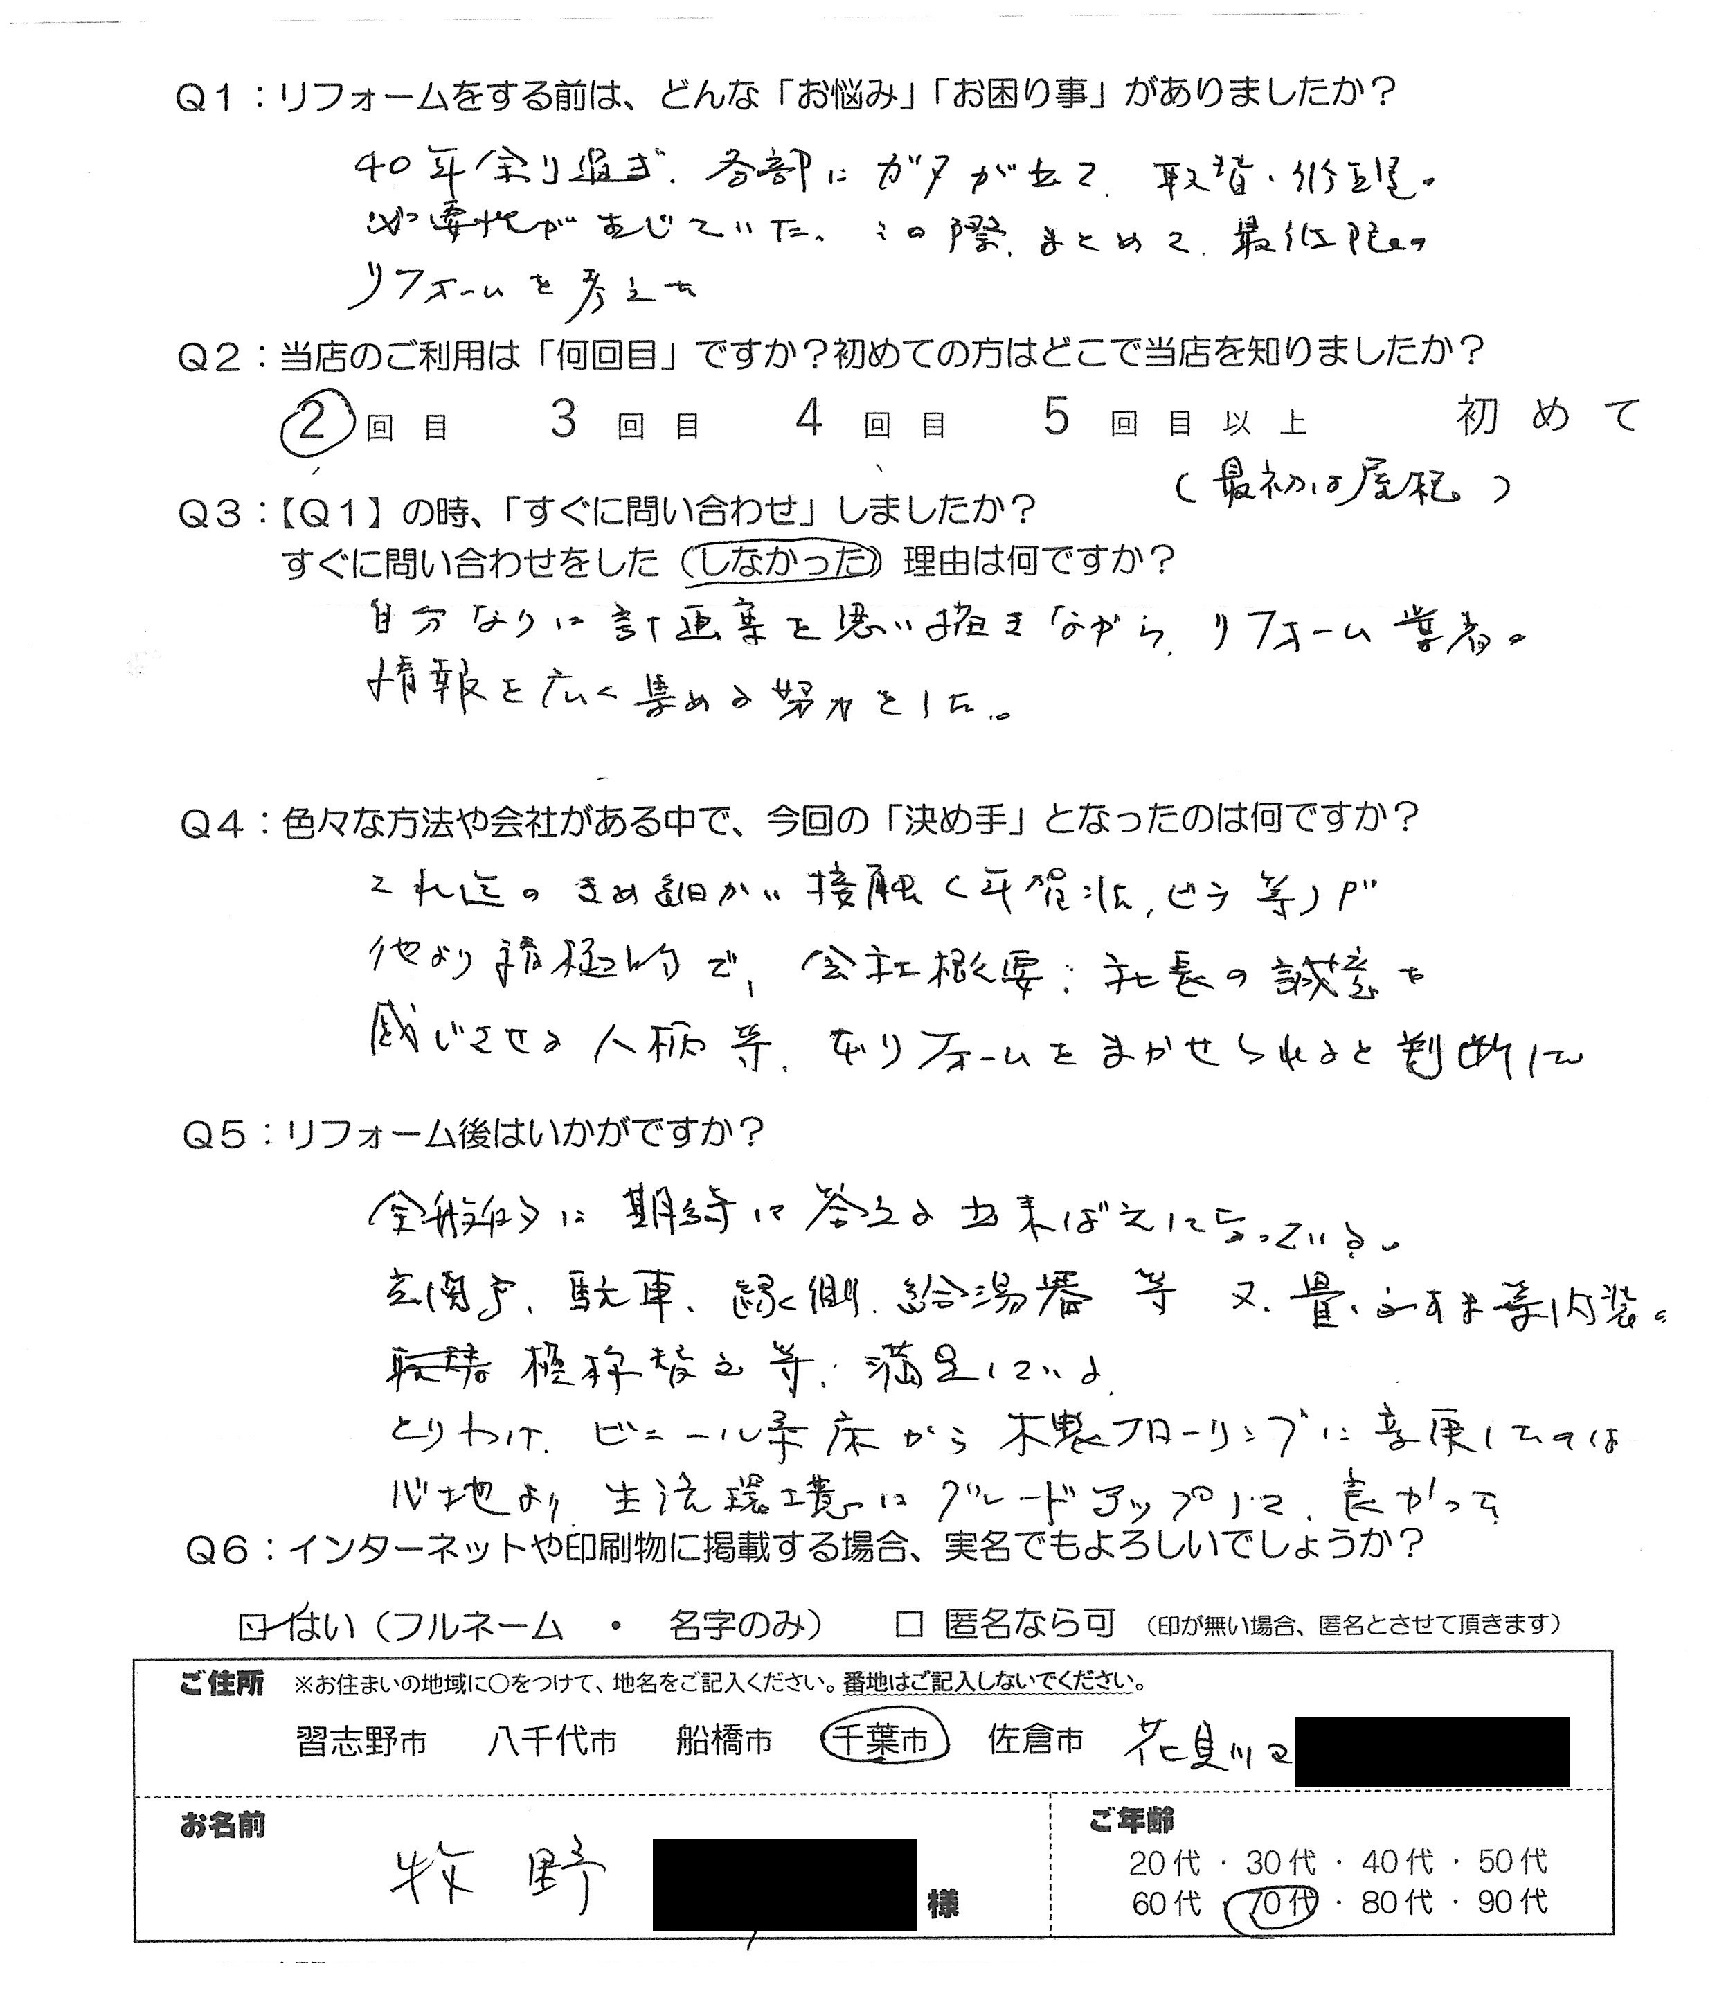 Q1：リフォームをする前は、どんな「お悩み」「お困り事」がありましたか？
40年余り過ぎ、各部にガタが出て、取替・修理の
必要性が生じていた。この際、まとめて、最低限の
リフォームを考えた
Q2：当店のご利用は「何回目」ですか？初めての方はどこで当店を知りましたか？
2回目 3回目 4回目 5回目以上 初めて
（最初は屋根）
Q3：【Q1】の時、「すぐに問い合わせ」しましたか？
すぐに問い合わせをした（しなかった）理由は何ですか？
自分なりに計画案を思い描きながら、リフォーム業者の
情報を広く集める努力をした。
Q4：色々な方法や会社がある中で、今回の「決め手」となったのは何ですか？
これ迄のきめ細かい接触（年賀状、ビラ等）が
他より積極的で、会社概要：社長の誠意を
感じさせる人柄等、本リフォームをまかせられると判断した
Q5：リフォーム後はいかがですか？
全般的に期待に答える出来ばえになっている。
玄関戸、駐車、縁側、給湯器 等 又、畳、ふすま等内装の
等、満足している。
とりわけ、ビニール系床から木製フローリングに変更したのは
心地より、生活環境にグレードアップして、良かった
Q6：インターネットや印刷物に掲載する場合、実名でもよろしいでしょうか？
□はい（フルネーム ・ 名字のみ） □ 匿名なら可 （印が無い場合、匿名とさせて頂きます）
ご住所 ※お住まいの地域に○をつけて、地名をご記入ください。番地はご記入しないでください。
習志野市 八千代市 船橋市 千葉市 佐倉市 花見川区
お名前 ご年齢
牧野 様 20代・30代・40代・50代
60代・70代・80代・90代